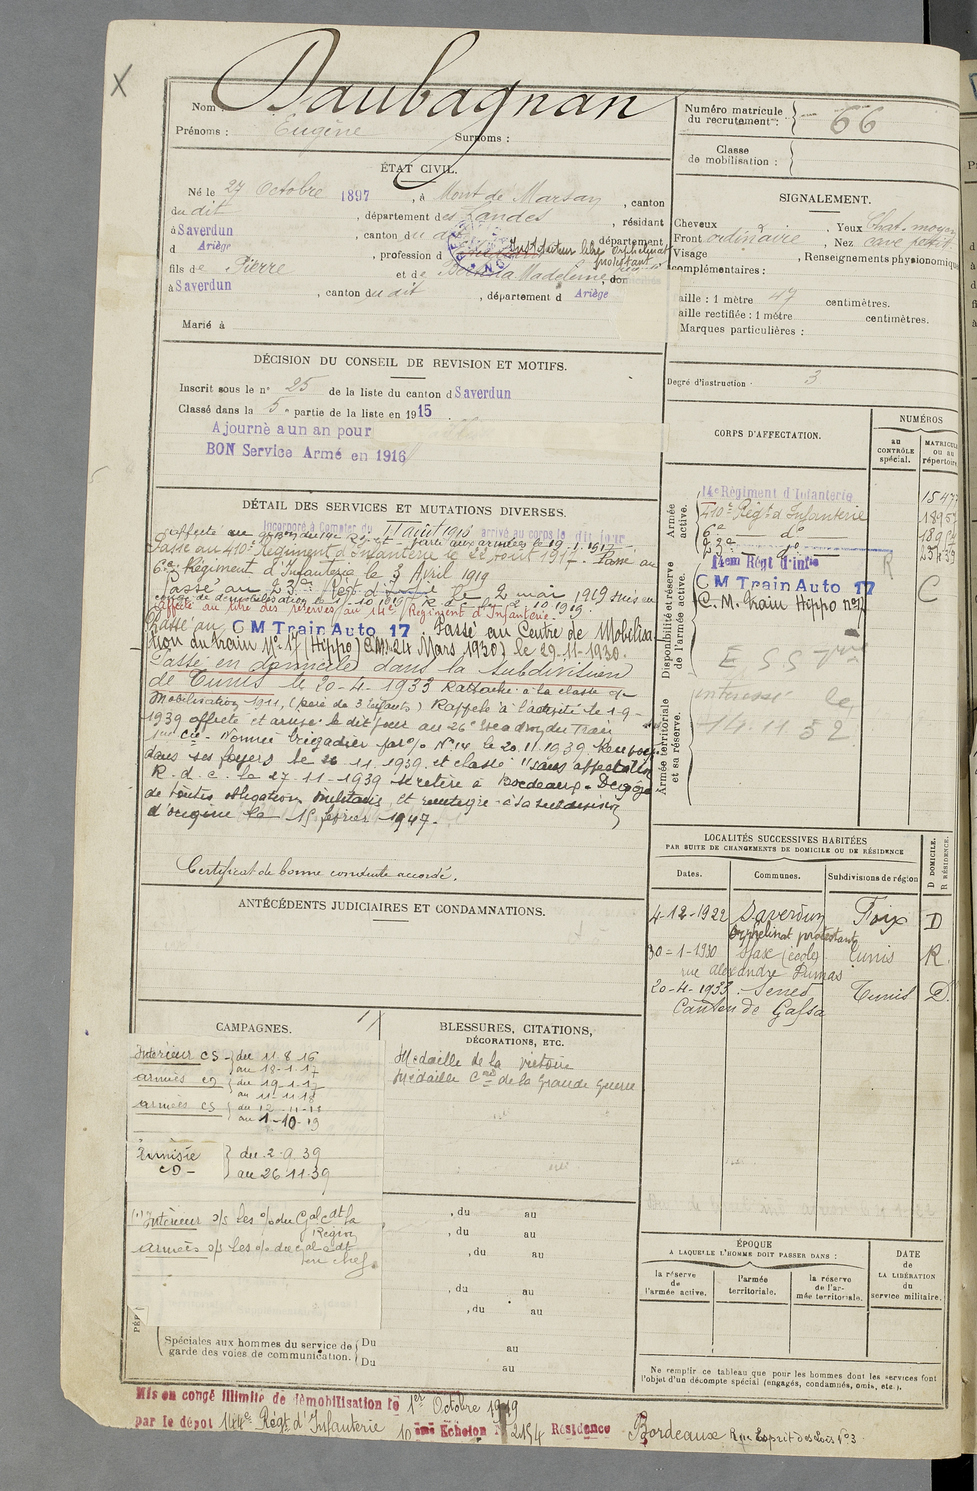 Nom : Daubagnan
Prénoms : Eugène Surnoms :
Numéro matricule du recrutement : 66
Classe de mobilisation :
ÉTAT CIVIL.
Né le 27 Octobre 1897, à Mont de Marsan, canton
du dit, département des Landes, résidant
à Saverdun, canton du dit, département
d Ariège, profession d Instituteur libre Orphelinat protestant
fils de Pierre et de Madeleine, dom
à Saverdun, canton du dit, département d Ariège
Marié à
SIGNALEMENT.
Cheveux Yeux Chat. moyen
Front ordinaire, Nez cave petit
Visage, Renseignements physionomique
complémentaires :
aille : 1 mètre 47 centimètres.
aille rectifiée : 1 mètre centimètres.
Marques particulières :
Degré d'instruction : 3
DÉCISION DU CONSEIL DE REVISION ET MOTIFS.
Inscrit sous le n° 25 de la liste du canton d Saverdun
Classé dans la 5e partie de la liste en 1915.
Ajourné a un an pour
BON Service Armé en 1916
CORPS D'AFFECTATION.
NUMÉROS
au CONTRÔLE spécial.
MATRICULE ou au répertoire
Armée active.
14e Régiment d'Infanterie
410e Régt d'Infanterie
6e do
23e do
Disponibilité et réserve de l'armée active.
14em Régt d'infie
CM Train Auto 17
C. M. Train Hippo n°17
C
R
Armée territoriale et sa réserve.
intéressé le
14 11 32
DÉTAIL DES SERVICES ET MUTATIONS DIVERSES.
Incorporé à Compter du 11 août 1916 arrivé au corps le dit jour
Parti aux armées le 19.1.1917.
Passé au 410e Régiment d'Infanterie le 22 août 1917. Passé au
6e Régiment d'Infanterie le 3 Avril 1919
Passé au 23e Régt d'Infie le 2 mai 1919
affecté au titre des réserves au 14e Régiment d'Infanterie.
Passé au CM Train Auto 17. Passé au Centre de Mobilisa-
tion du train N° 17 (Hippo) (C.M. 24 Mars 1930) le 29-11-1930.
Passé en domicile dans la Subdivision
de Tunis le 20-4-1933 Rattaché à la classe de
Mobilisation 1911, (père de 3 enfants) Rappelé à l'activité le 1-9-
1939 affecté et arrivé le dit jour au 26e Escadron du Train
1ère Cie. Nommé brigadier par % N° 14 le 20.11.1939. Renvoyé
dans ses foyers le 26 11.1939 et classé "sans affectation"
R. d. c. le 27-11-1939 se retire à Bordeaux. Dégagé
de toutes obligations militaires et réintégré à la subdivision
d'origine le 15 février 1947.
Certificat de bonne conduite accordé.
ANTÉCÉDENTS JUDICIAIRES ET CONDAMNATIONS.
LOCALITÉS SUCCESSIVES HABITÉES
PAR SUITE DE CHANGEMENTS DE DOMICILE OU DE RÉSIDENCE
Dates. Communes. Subdivisions de région D DOMICILE. R RÉSIDENCE.
4-12-1922 Saverdun Foix D
Orphelinat protestant
30-1-1930 Sfax (école) Tunis R.
rue Alexandre Dumas
20-4-1933 Sened Tunis D.
Canton de Gafsa
CAMPAGNES.
Intérieur CS du 11 8 16
au 18-1-17
armées CD du 19-1-17
au 11-11-18
armées CS du 12-11-18
au 1-10-19
Tunisie CD du 2.9.39
au 26 11.39
Intérieur o/s les % du Gal Cdt la
Région
Armées o/s les % du gal cdt
en chef.
BLESSURES, CITATIONS,
DÉCORATIONS, ETC.
Médaille de la victoire
Médaille Cve de la Grande Guerre
, du au
, du au
, du au
, du au
, du au
Spéciales aux hommes du service de garde des voies de communication. Du au
Du au
ÉPOQUE
A LAQUELLE L'HOMME DOIT PASSER DANS :
la réserve de l'armée active.
l'armée territoriale.
la réserve de l'armée territoriale.
DATE de LA LIBÉRATION du service militaire.
Ne remplir ce tableau que pour les hommes dont les services font
l'objet d'un décompte spécial (engagés, condamnés, omis, etc.).
Mis en congé illimité de démobilisation le 1er Octobre 1919
par le dépôt 144e Régt d'Infanterie 10 ème Echelon N° 2154 Résidence Bordeaux Rue Esprit des Lois N° 3